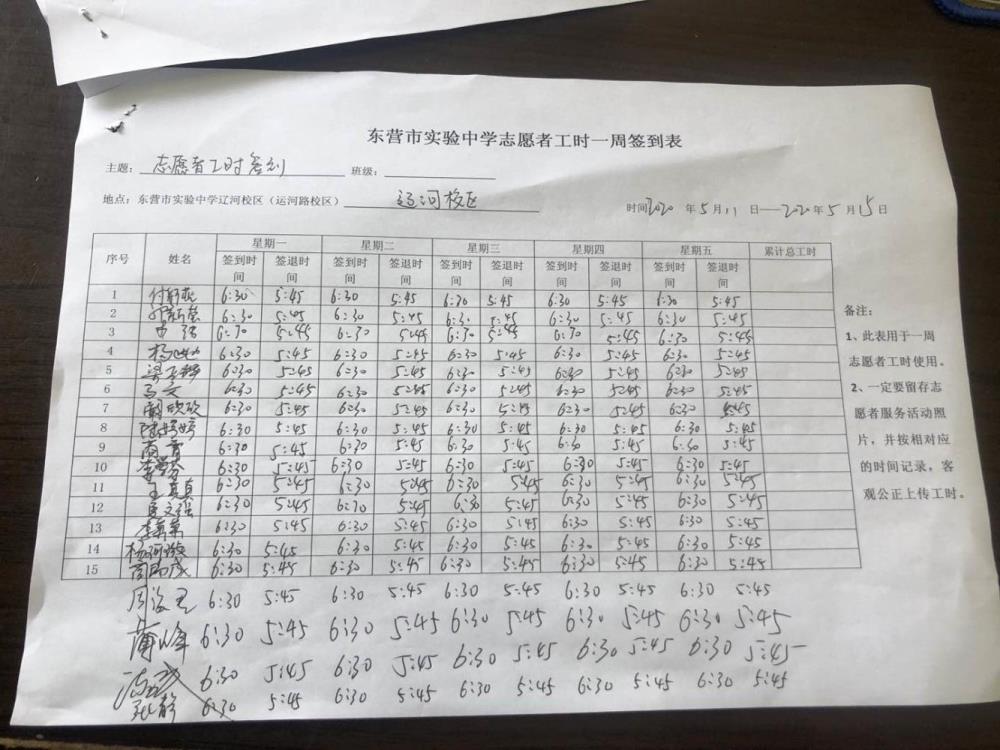 东营市实验中学志愿者工时一周签到表
主题: 志愿者工时签到 班级:
地点: 东营市实验中学辽河校区（运河路校区） 辽河校区 时间 2020 年 5 月 11 日—2020 年 5 月 15 日
序号 姓名 星期一 星期二 星期三 星期四 星期五 累计总工时
签到时间 签退时间 签到时间 签退时间 签到时间 签退时间 签到时间 签退时间 签到时间 签退时间
1 6:30 5:45 6:30 5:45 6:30 5:45 6:30 5:45 6:30 5:45
2 6:30 5:45 6:30 5:45 6:30 5:45 6:30 5:45 6:30 5:45
3 6:30 5:45 6:30 5:45 6:30 5:45 6:30 5:45 6:30 5:45
4 6:30 5:45 6:30 5:45 6:30 5:45 6:30 5:45 6:30 5:45
5 6:30 5:45 6:30 5:45 6:30 5:45 6:30 5:45 6:30 5:45
6 马文 6:30 5:45 6:30 5:45 6:30 5:45 6:30 5:45 6:30 5:45
7 6:30 5:45 6:30 5:45 6:30 5:45 6:30 5:45 6:30 5:45
8 陈婷婷 6:30 5:45 6:30 5:45 6:30 5:45 6:30 5:45 6:30 5:45
9 6:30 5:45 6:30 5:45 6:30 5:45 6:30 5:45 6:30 5:45
10 6:30 5:45 6:30 5:45 6:30 5:45 6:30 5:45 6:30 5:45
11 王真真 6:30 5:45 6:30 5:45 6:30 5:45 6:30 5:45 6:30 5:45
12 6:30 5:45 6:30 5:45 6:30 5:45 6:30 5:45 6:30 5:45
13 6:30 5:45 6:30 5:45 6:30 5:45 6:30 5:45 6:30 5:45
14 6:30 5:45 6:30 5:45 6:30 5:45 6:30 5:45 6:30 5:45
15 6:30 5:45 6:30 5:45 6:30 5:45 6:30 5:45 6:30 5:45
6:30 5:45 6:30 5:45 6:30 5:45 6:30 5:45 6:30 5:45
6:30 5:45 6:30 5:45 6:30 5:45 6:30 5:45 6:30 5:45
6:30 5:45 6:30 5:45 6:30 5:45 6:30 5:45 6:30 5:45
6:30 5:45 6:30 5:45 6:30 5:45 6:30 5:45 6:30 5:45
备注:
1、此表用于一周
志愿者工时使用。
2、一定要留存志
愿者服务活动照
片，并按相对应
的时间记录，客
观公正上传工时。